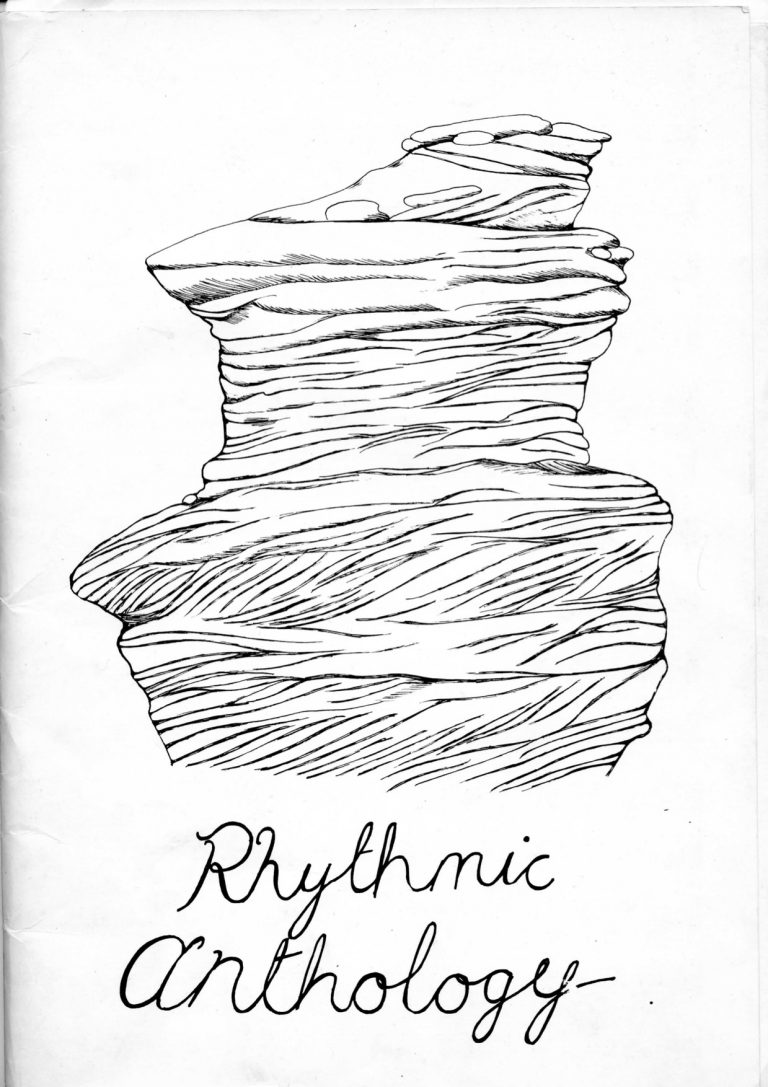 Rhythmic
Anthology-